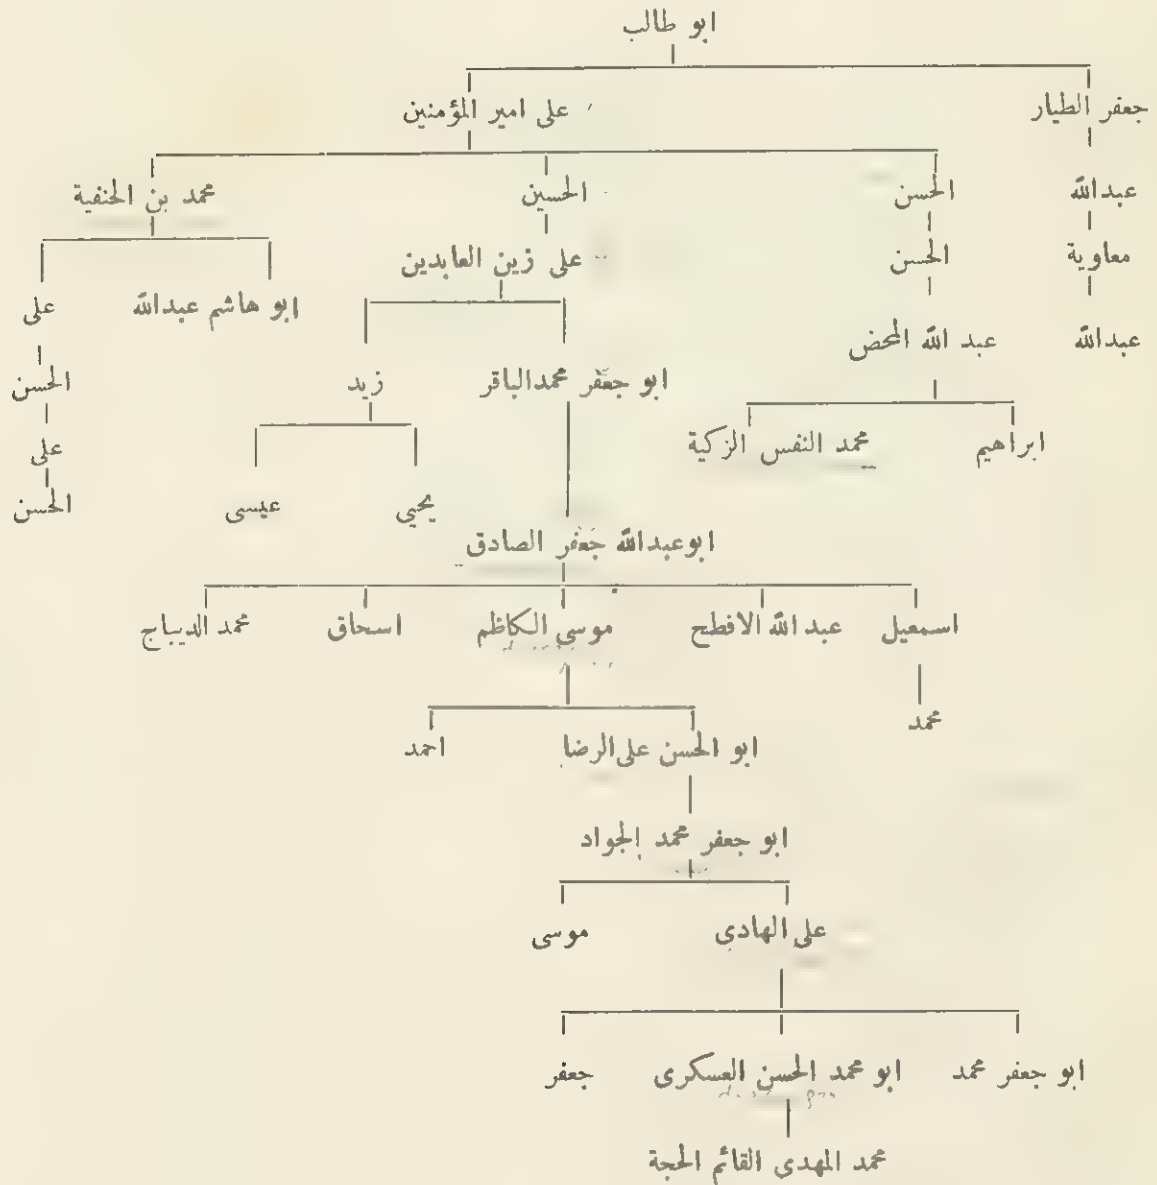 ابو طالب
جعفر الطيار
على امير المؤمنين
عبدالله
الحسن
الحسين
محمد بن الحنفية
معاوية
الحسن
على زين العابدين
ابو هاشم عبدالله
على
عبدالله
عبد الله المحض
ابو جعفر محمدالباقر
زيد
الحسن
ابراهيم
محمد النفس الزكية
على
يحيى
عيسى
الحسن
ابوعبدالله جعفر الصادق
اسمعيل
عبد الله الافطح
موسى الكاظم
اسحاق
محمد الديباج
محمد
ابو الحسن على الرضا
احمد
ابو جعفر محمد الجواد
على الهادى
موسى
ابو جعفر محمد
ابو محمد الحسن العسكرى
جعفر
محمد المهدى القائم الحجة